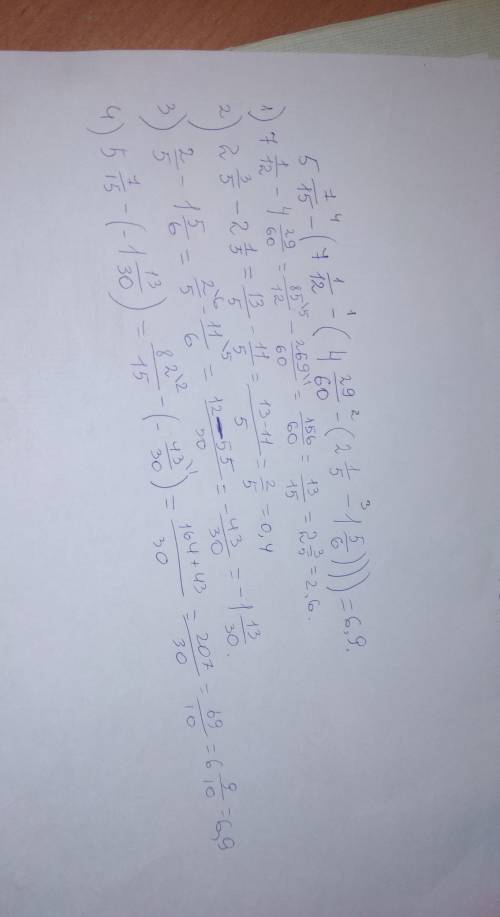 5 7/15 ⁴ - (7 1/12 ¹ - (4 29/60 ² - (2 1/5 ³ - 1 5/6)))) = 6,9.
1) 7 1/12 - 4 29/60 = 85\5/12 - 269\1/60 = 156/60 = 13/15 = 2 3/5 = 2,6.
2) 2 3/5 - 2 1/5 = 13/5 - 11/5 = 13-11/5 = 2/5 = 0,4
3) 2/5 - 1 5/6 = 2\6/5 - 11\5/6 = 12-55/30 = -43/30 = -1 13/30.
4) 5 7/15 - (-1 13/30) = 82\2/15 - (-43\1/30) = 164+43/30 = 207/30 = 69/10 = 6 9/10 = 6,9